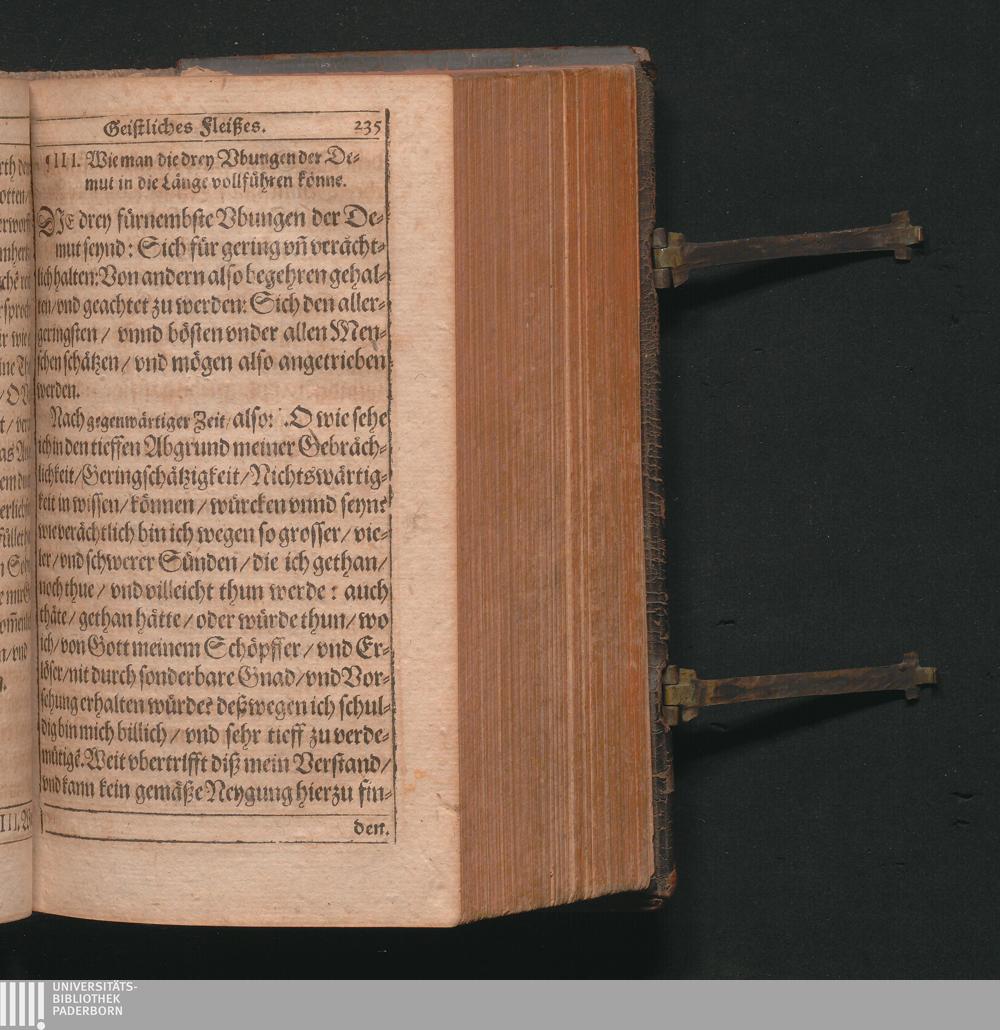 Geistliches Fleißes. 235
¶III. Wie man die drey Vbungen der De-
mut in die Länge vollführen könne.
DJE drey fürnembste Vbungen der De-
mut seynd: Sich für gering vñ verächt-
lich halten: Von andern also begehren gehal-
ten/vnd geachtet zu werden: Sich den aller-
geringsten / vnnd bösten vnder allen Men-
schen schätzen / vnd mögen also angetrieben
werden.
Nach gegenwärtiger Zeit/also: O wie sehe
ich in den tieffen Abgrund meiner Gebräch-
lichkeit/Geringschätzigkeit/Nichtswärtig-
keit in wissen/können / würcken vnnd seyn?
wie verächtlich bin ich wegen so grosser/vie-
ler/vnd schwerer Sünden/die ich gethan/
noch thue / vnd villeicht thun werde: auch
thäte/ gethan hätte/oder würde thun/wo
ich/von Gott meinem Schöpffer/vnd Er-
löser/nit durch sonderbare Gnad/vnd Vor-
sehung erhalten würde? deßwegen ich schul-
dig bin mich billich/ vnd sehr tieff zu verde-
mütigẽ. Weit vbertrifft diß mein Verstand/
vnd kann kein gemäße Neygung hierzu fin-
den.
UNIVERSITÄTS-
BIBLIOTHEK
PADERBORN